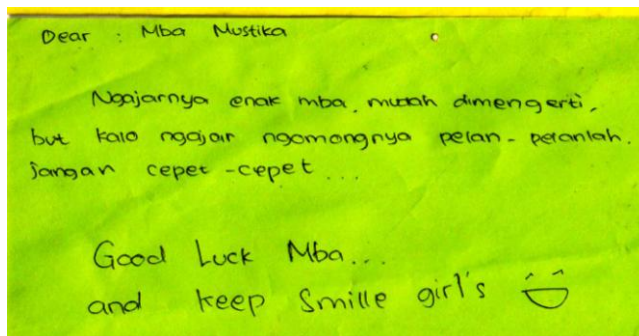 Dear : Mba Mustika
Ngajarnya enak mba, mudah dimengerti,
but kalo ngajar ngomongnya pelan-pelanlah.
jangan cepet-cepet...
Good Luck Mba...
and keep Smille girl's